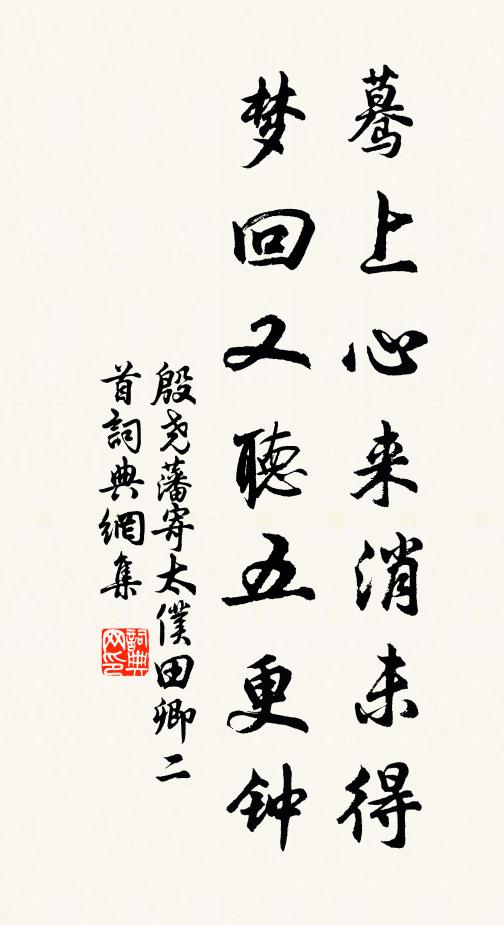 蓦上心来消未得
梦回又聽五更钟
殷尧藩寄太僕田卿二
首詞典網集
詞典
网印